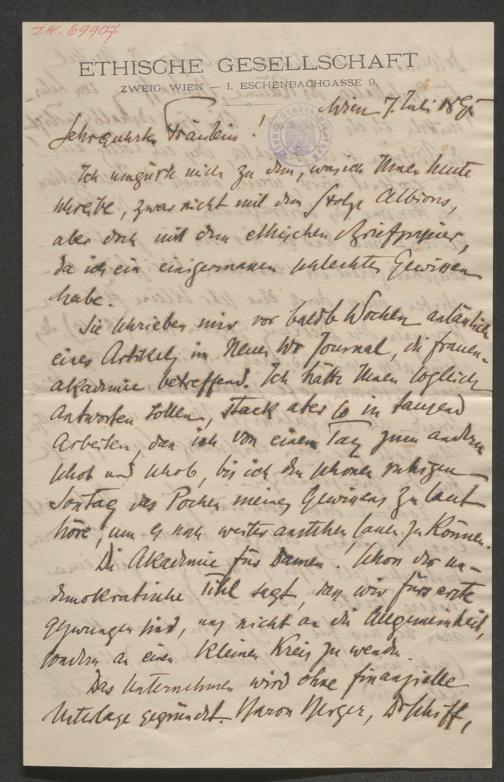 J.N. 69907
ETHISCHE GESELLSCHAFT
ZWEIG WIEN — I. ESCHENBACHGASSE 9.
Wien 7. Juli
Sehr geehrtes Fräulein!
Ich umgürte mich zu dem, was ich Ihnen heute
schreibe, zwar nicht mit dem Stolze Albions,
aber doch mit dem ethischen Briefpapier,
da ich ein einigermassen schlechtes Gewissen
habe.
Sie schrieben mir vor bald Wochen anlässlich
eines Artikels im Neuen Wr Journal, die Frauen-
akademie betreffend. Ich hätte Ihnen sogleich
antworten sollen, stack aber so in tausend
Arbeiten, dass ich von einem Tag zum andern
schob und schob, bis ich den schönen ruhigen
Sontag das Pochen meines Gewissens zu laut
höre, um es noch weiter anstehen lassen zu können.
Die Akademie für Damen. Schon der un-
demokratische Titel sagt, dass wir fürs erste
gezwungen sind, uns nicht an die Allgemeinheit,
sondern an einen kleinen Kreis zu wenden.
Das Unternehmen wird ohne finanzielle
Unterlage gegründet. Baron Berger, Dr Schiff,